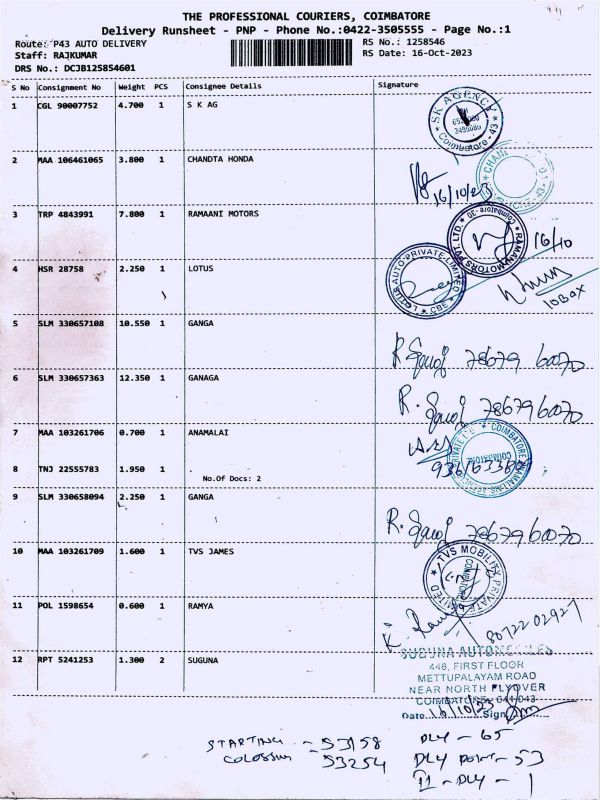 THE PROFESSIONAL COURIERS, COIMBATORE
Delivery Runsheet - PNP - Phone No.:0422-3505555 - Page No.:1
Route: P43 AUTO DELIVERY
RS No.: 1258546
Staff: RAJKUMAR
RS Date: 16-Oct-2023
DRS No.: DCJB125854601
S No Consignment No Weight PCS Consignee Details Signature
1 CGL 90007752 4.700 1 S K AG
SK AGENCY
Coimbatore - 43
2 MAA 106461065 3.800 1 CHANDTA HONDA
16/10/23
3 TRP 4843991 7.800 1 RAMAANI MOTORS
RAMANI MOTORS PVT. LTD
Coimbatore-30
16/10
4 HSR 28758 2.250 1 LOTUS
LOTUS AUTO PRIVATE LIMITED
CBE
5 SLM 330657108 10.550 1 GANGA
78679 60070
6 SLM 330657363 12.350 1 GANAGA
78679 60070
7 MAA 103261706 0.700 1 ANAMALAI
COIMBATORE
8 TNJ 22555783 1.950 1
No.Of Docs: 2
9 SLM 330658094 2.250 1 GANGA
78679 60070
10 MAA 103261709 1.600 1 TVS JAMES
TVS MOBILITY PRIVATE LIMITED
COIMBATORE
11 POL 1598654 0.600 1 RAMYA
8072202927
12 RPT 5241253 1.300 2 SUGUNA
SUGUNA AUTOMOBILES
446, FIRST FLOOR
METTUPALAYAM ROAD
NEAR NORTH FLYOVER
COIMBATORE - 641 043
Date 16/10/23 Sign
STARTING - 53158
DLY - 65
53254
DLY POINT - 53
DLY - 1